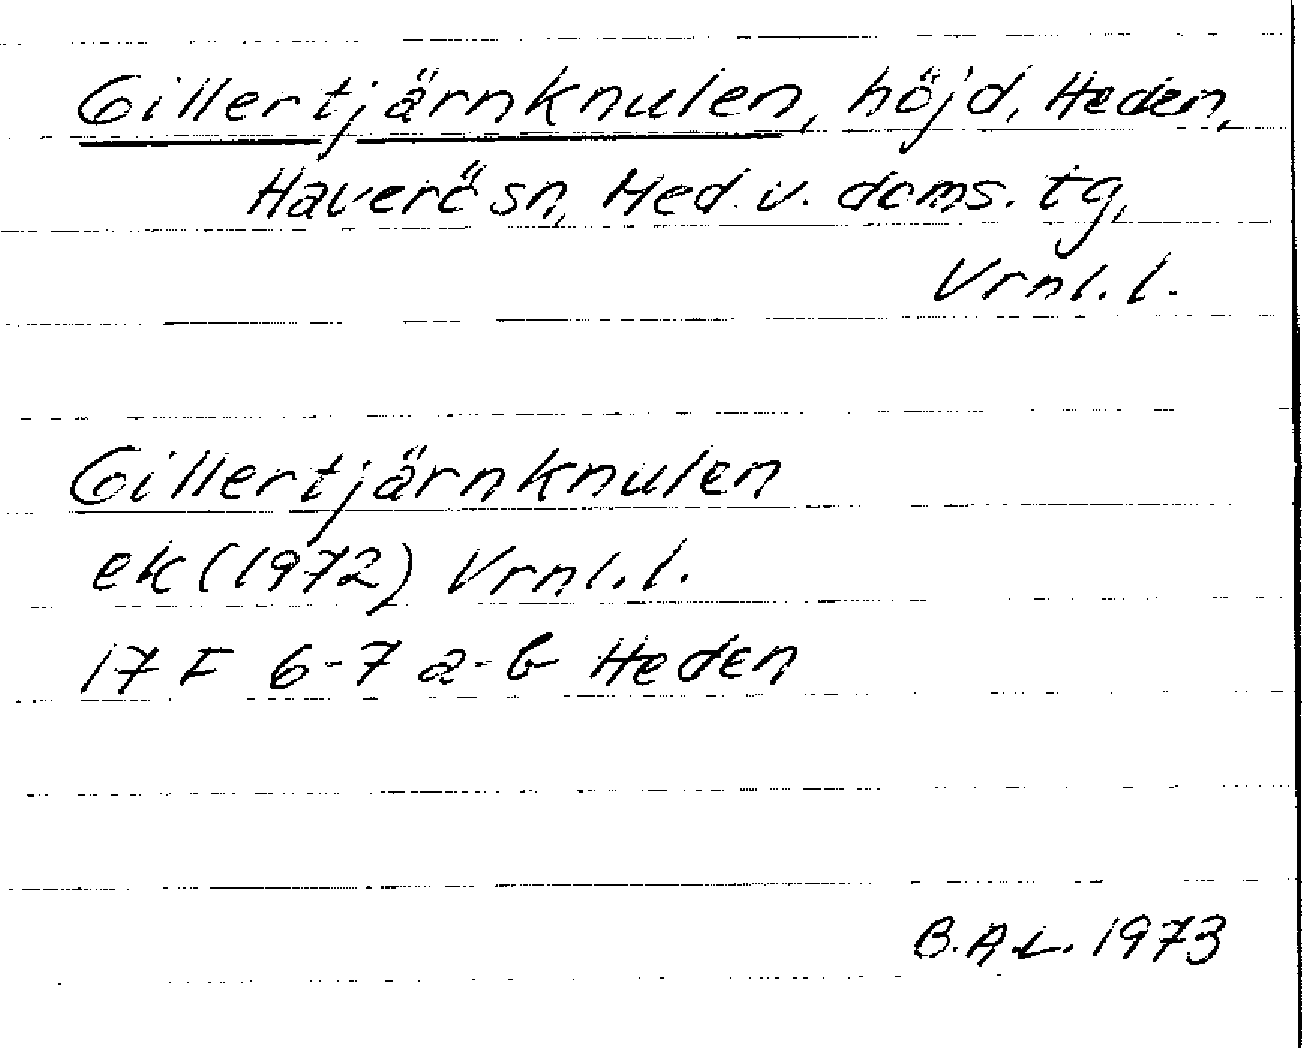 Gillertjärnknulen, höjd, Heden,
Haverö sn, Med. v. doms. tg,
Vrnl. l.
Gillertjärnknulen
ek (1972) Vrnl. l.
17 F 6-7 a-b Heden
B.A.L. 1973